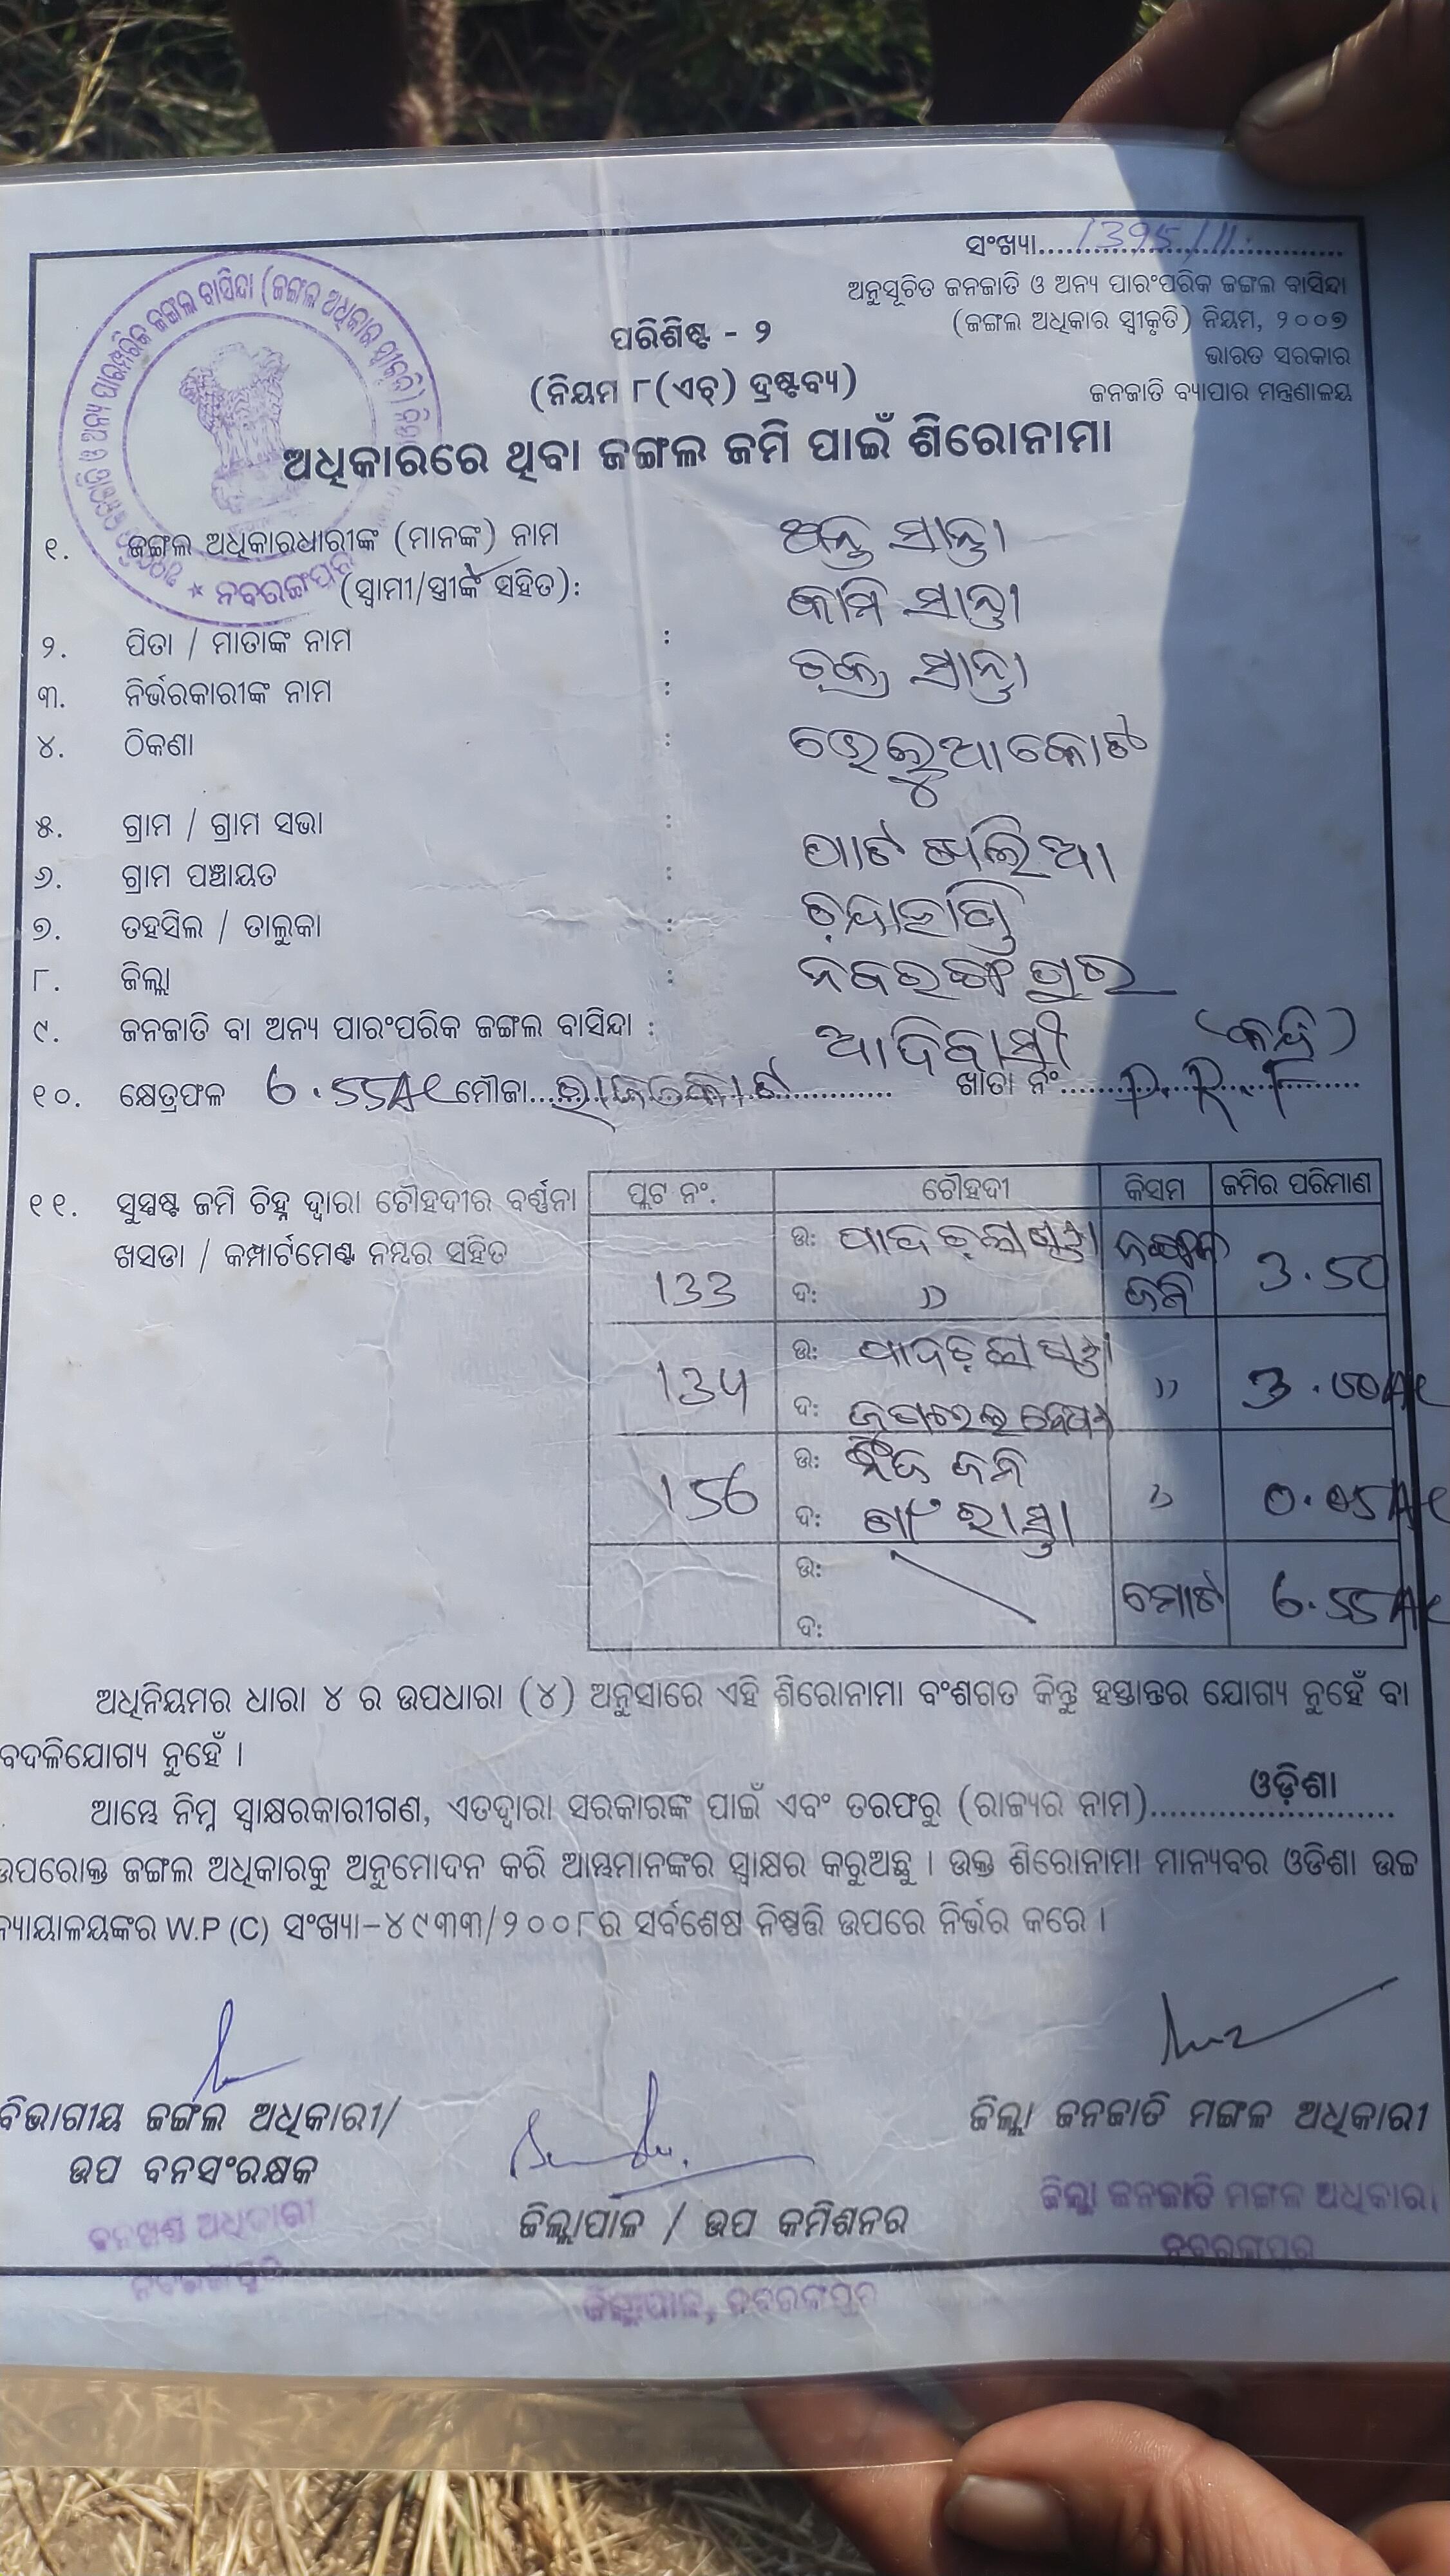 ସଂଖ୍ୟା.....1395/11.....
ଅନୁସୂଚିତ ଜନଜାତି ଓ ଅନ୍ୟ ପାରଂପରିକ ଜଙ୍ଗଲ ବାସିନ୍ଦା
(ଜଙ୍ଗଲ ଅଧିକାର ସ୍ୱୀକୃତି) ନିୟମ, ୨୦୦୭
ଭାରତ ସରକାର
ଜନଜାତି ବ୍ୟାପାର ମନ୍ତ୍ରଣାଳୟ
ପରିଶିଷ୍ଟ - ୨
(ନିୟମ ୮(ଏଚ୍) ଦ୍ରଷ୍ଟବ୍ୟ)
ଅଧିକାରରେ ଥିବା ଜଙ୍ଗଲ ଜମି ପାଇଁ ଶିରୋନାମା
୧. ଜଙ୍ଗଲ ଅଧିକାରଧାରୀଙ୍କ (ମାନଙ୍କ) ନାମ ଅନ୍ତୁ ସାନ୍ତା
(ସ୍ୱାମୀ/ସ୍ତ୍ରୀଙ୍କ ସହିତ): ସାନ୍ତା
୨. ପିତା / ମାତାଙ୍କ ନାମ : ସାନ୍ତା
୩. ନିର୍ଭରକାରୀଙ୍କ ନାମ :
୪. ଠିକଣା :
୫. ଗ୍ରାମ / ଗ୍ରାମ ସଭା :
୬. ଗ୍ରାମ ପଞ୍ଚାୟତ :
୭. ତହସିଲ / ତାଲୁକା : ଚନ୍ଦାହାଣ୍ଡି
୮. ଜିଲ୍ଲା : ନବରଙ୍ଗପୁର
୯. ଜନଜାତି ବା ଅନ୍ୟ ପାରଂପରିକ ଜଙ୍ଗଲ ବାସିନ୍ଦା : ଆଦିବାସୀ
୧୦. କ୍ଷେତ୍ରଫଳ 6.55Ac ମୌଜା..... ଖାତା ନଂ..... P.R.F
୧୧. ସୁସ୍ପଷ୍ଟ ଜମି ଚିହ୍ନ ଦ୍ୱାରା ଚୌହଦୀର ବର୍ଣ୍ଣନା
ଖସଡା / କମ୍ପାର୍ଟମେଣ୍ଟ ନମ୍ବର ସହିତ
ପ୍ଲଟ ନଂ. ଚୌହଦୀ କିସମ ଜମିର ପରିମାଣ
133 ଉ: ଜଙ୍ଗଲ 3.50
ଦ: " ଜମି
134 ଉ: "
ଦ:
156 ଉ: ଜମି " 0.05Ac
ଦ: ରାସ୍ତା
ଉ: ମୋଟ 6.55Ac
ଦ:
ଅଧିନିୟମର ଧାରା ୪ ର ଉପଧାରା (୪) ଅନୁସାରେ ଏହି ଶିରୋନାମା ବଂଶଗତ କିନ୍ତୁ ହସ୍ତାନ୍ତର ଯୋଗ୍ୟ ନୁହେଁ ବା
ବଦଳିଯୋଗ୍ୟ ନୁହେଁ ।
ଆମ୍ଭେ ନିମ୍ନ ସ୍ୱାକ୍ଷରକାରୀଗଣ, ଏତଦ୍ୱାରା ସରକାରଙ୍କ ପାଇଁ ଏବଂ ତରଫରୁ (ରାଜ୍ୟର ନାମ).....ଓଡ଼ିଶା.....
ଉପରୋକ୍ତ ଜଙ୍ଗଲ ଅଧିକାରକୁ ଅନୁମୋଦନ କରି ଆମ୍ଭମାନଙ୍କର ସ୍ୱାକ୍ଷର କରୁଅଛୁ । ଉକ୍ତ ଶିରୋନାମା ମାନ୍ୟବର ଓଡିଶା ଉଚ୍ଚ
ନ୍ୟାୟାଳୟଙ୍କର W.P (C) ସଂଖ୍ୟା-୪୯୩୩/୨୦୦୮ର ସର୍ବଶେଷ ନିଷ୍ପତ୍ତି ଉପରେ ନିର୍ଭର କରେ ।
ବିଭାଗୀୟ ଜଙ୍ଗଲ ଅଧିକାରୀ/
ଉପ ବନସଂରକ୍ଷକ
ଜିଲ୍ଲାପାଳ / ଉପ କମିଶନର
ଜିଲ୍ଲା ଜନଜାତି ମଙ୍ଗଳ ଅଧିକାରୀ
ଜିଲ୍ଲା ଜନଜାତି ମଙ୍ଗଳ ଅଧିକାରୀ
ନବରଙ୍ଗପୁର
ଜିଲ୍ଲାପାଳ, ନବରଙ୍ଗପୁର